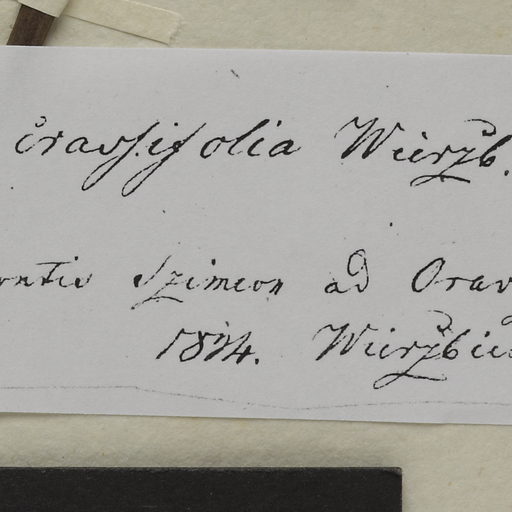 crassifolia Wierzb.
ontis Szimeon ad Orav
Wierzbic